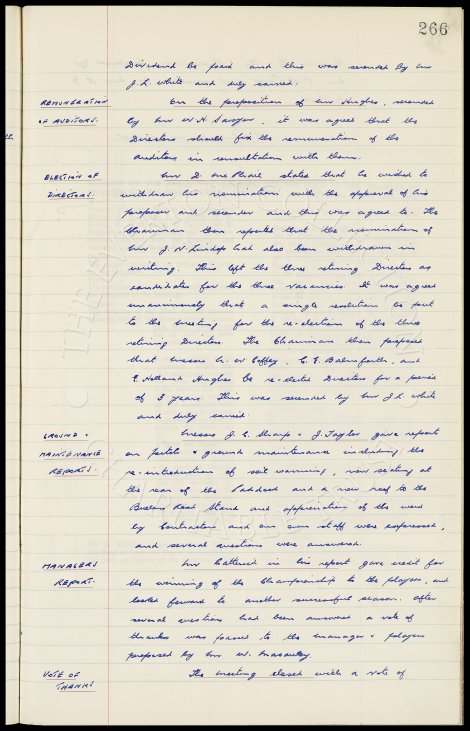 266
Dividend be paid and this was seconded by Mr
J. L. White and duly carried.
REMUNERATION OF AUDITORS.
On the proposition of Mr Hughes, seconded
by Mr W. H. Sawyer, it was agreed that the
Directors should fix the remuneration of the
Auditors in consultation with them.
ELECTION OF DIRECTORS.
Mr D. stated that he wished to
withdraw his nomination with the approval of his
proposer and seconder and this was agreed to. The
Chairman then reported that the nomination of
Mr J. N. Lindop had also been withdrawn in
writing. This left the three retiring Directors as
candidates for the three vacancies. It was agreed
unanimously that a single resolution be put
to the meeting for the re-election of the three
retiring Directors. The Chairman then proposed
that Messrs G. W. Gaffey, C. E. Balmforth, and
E. Holland Hughes be re-elected Directors for a period
of 3 years. This was seconded by Mr J. L. White
and duly carried
GROUND & MAINTENANCE REPORTS.
Messrs J. C. Sharp & J. Taylor gave reports
on pitch & ground maintenance including the
re-introduction of soil warming, new seating at
the rear of the Paddock and a new roof to the
Bullens Road Stand and appreciation of the work
by Contractors and our own staff were expressed,
and several questions were answered.
MANAGERS REPORT.
Mr Catterick in his report gave credit for
the winning of the Championship to the players, and
looked forward to another successful season. After
several questions had been answered a vote of
thanks was passed to the manager & players
proposed by Mr W. Macauley.
VOTE OF THANKS
The meeting closed with a vote of